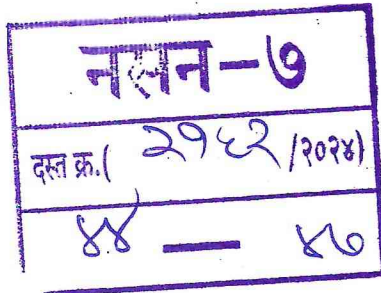 नसन-७
दस्त क्र.( २१६२ /२०२४)
४४ — ४७